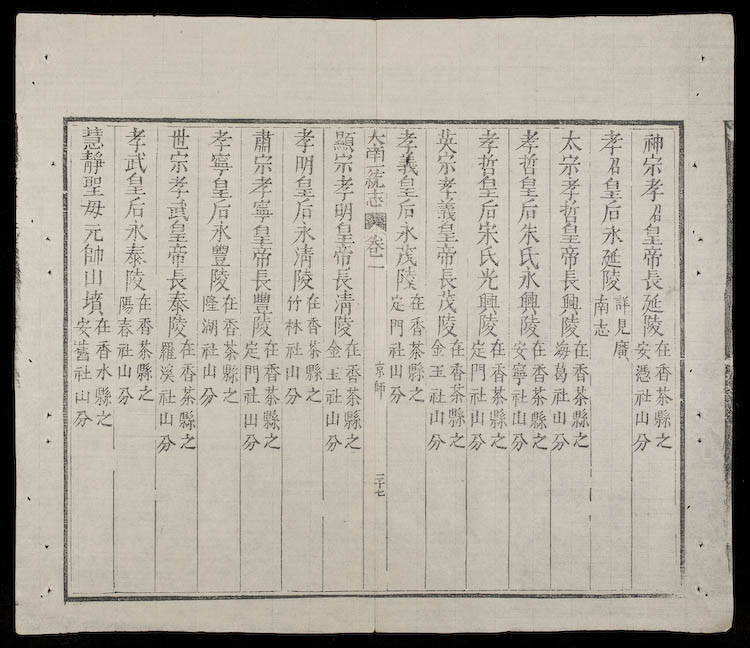 神宗孝召皇帝長延陵 在香茶縣之安憑社山分
孝召皇后永延陵 詳見廣南志
太宗孝哲皇帝長興陵 在香茶縣之海葛社山分
孝哲皇后朱氏永興陵 在香茶縣之安寧社山分
孝哲皇后宋氏光興陵 在香茶縣之定門社山分
英宗孝義皇帝長茂陵 在香茶縣之金玉社山分
孝義皇后永茂陵 在香茶縣之定門社山分
大南一統志 卷一 京師 二十七
顯宗孝明皇帝長清陵 在香茶縣之金玉社山分
孝明皇后永清陵 在香茶縣之竹林社山分
肅宗孝寧皇帝長豐陵 在香茶縣之定門社山分
孝寧皇后永豐陵 在香茶縣之隆湖社山分
世宗孝武皇帝長泰陵 在香茶縣之羅溪社山分
孝武皇后永泰陵 在香茶縣之陽春社山分
慧靜聖母元帥山墳 在香水縣之安舊社山分